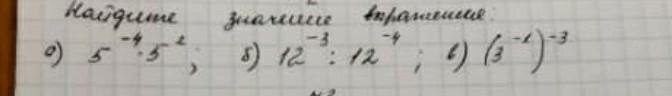 Найдите значение выражения:
а) 5⁻⁴·5²; б) 12⁻³ : 12⁻⁴; в) (3⁻¹)⁻³